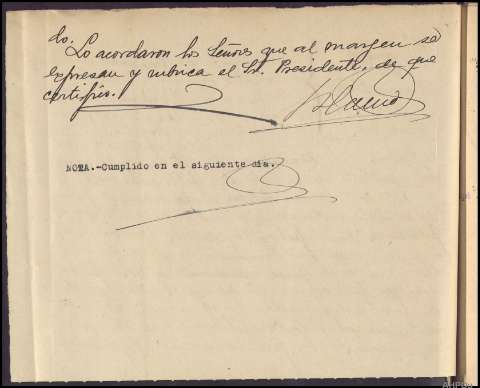 do.
Lo acordaron los Señores que al margen se
expresan y rubrica el Sr. Presidente, de que
certifico.
NOTA.-Cumplido en el siguiente dia.